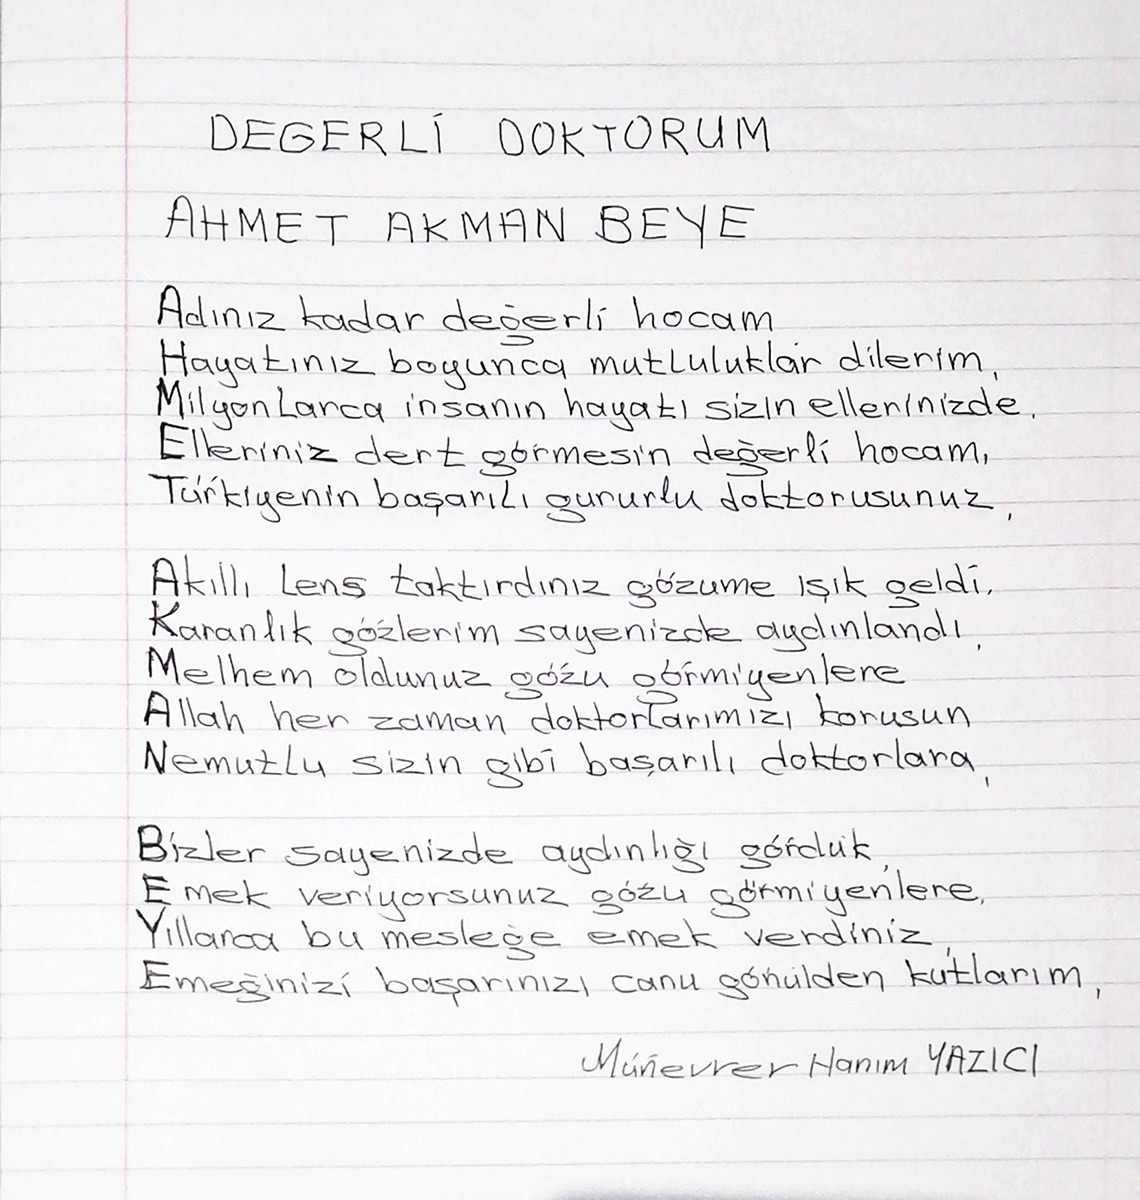 DEGERLİ DOKTORUM
AHMET AKMAN BEYE
Adınız kadar değerli hocam
Hayatınız boyunca mutluluklar dilerim,
Milyonlarca insanın hayatı sizin ellerinizde,
Elleriniz dert görmesin değerli hocam,
Türkiyenin başarılı gururlu doktorusunuz,
Akıllı lens taktırdınız gözume ışık geldi,
Karanlık gözlerim sayenizde aydınlandı,
Melhem oldunuz gözu görmiyenlere
Allah her zaman doktorlarımızı korusun
Nemutlu sizin gibi başarılı doktorlara,
Bizler sayenizde aydınlığı gördük,
Emek veriyorsunuz gözu görmiyenlere,
Yıllarca bu mesleğe emek verdiniz,
Emeğinizi başarınızı canu gönülden kutlarım,
Münevver Hanım YAZICI